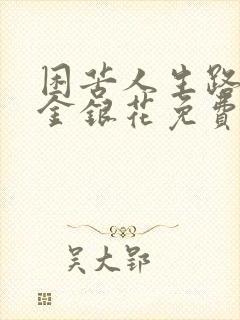 困苦人生路
金銀花免費
吴大郢